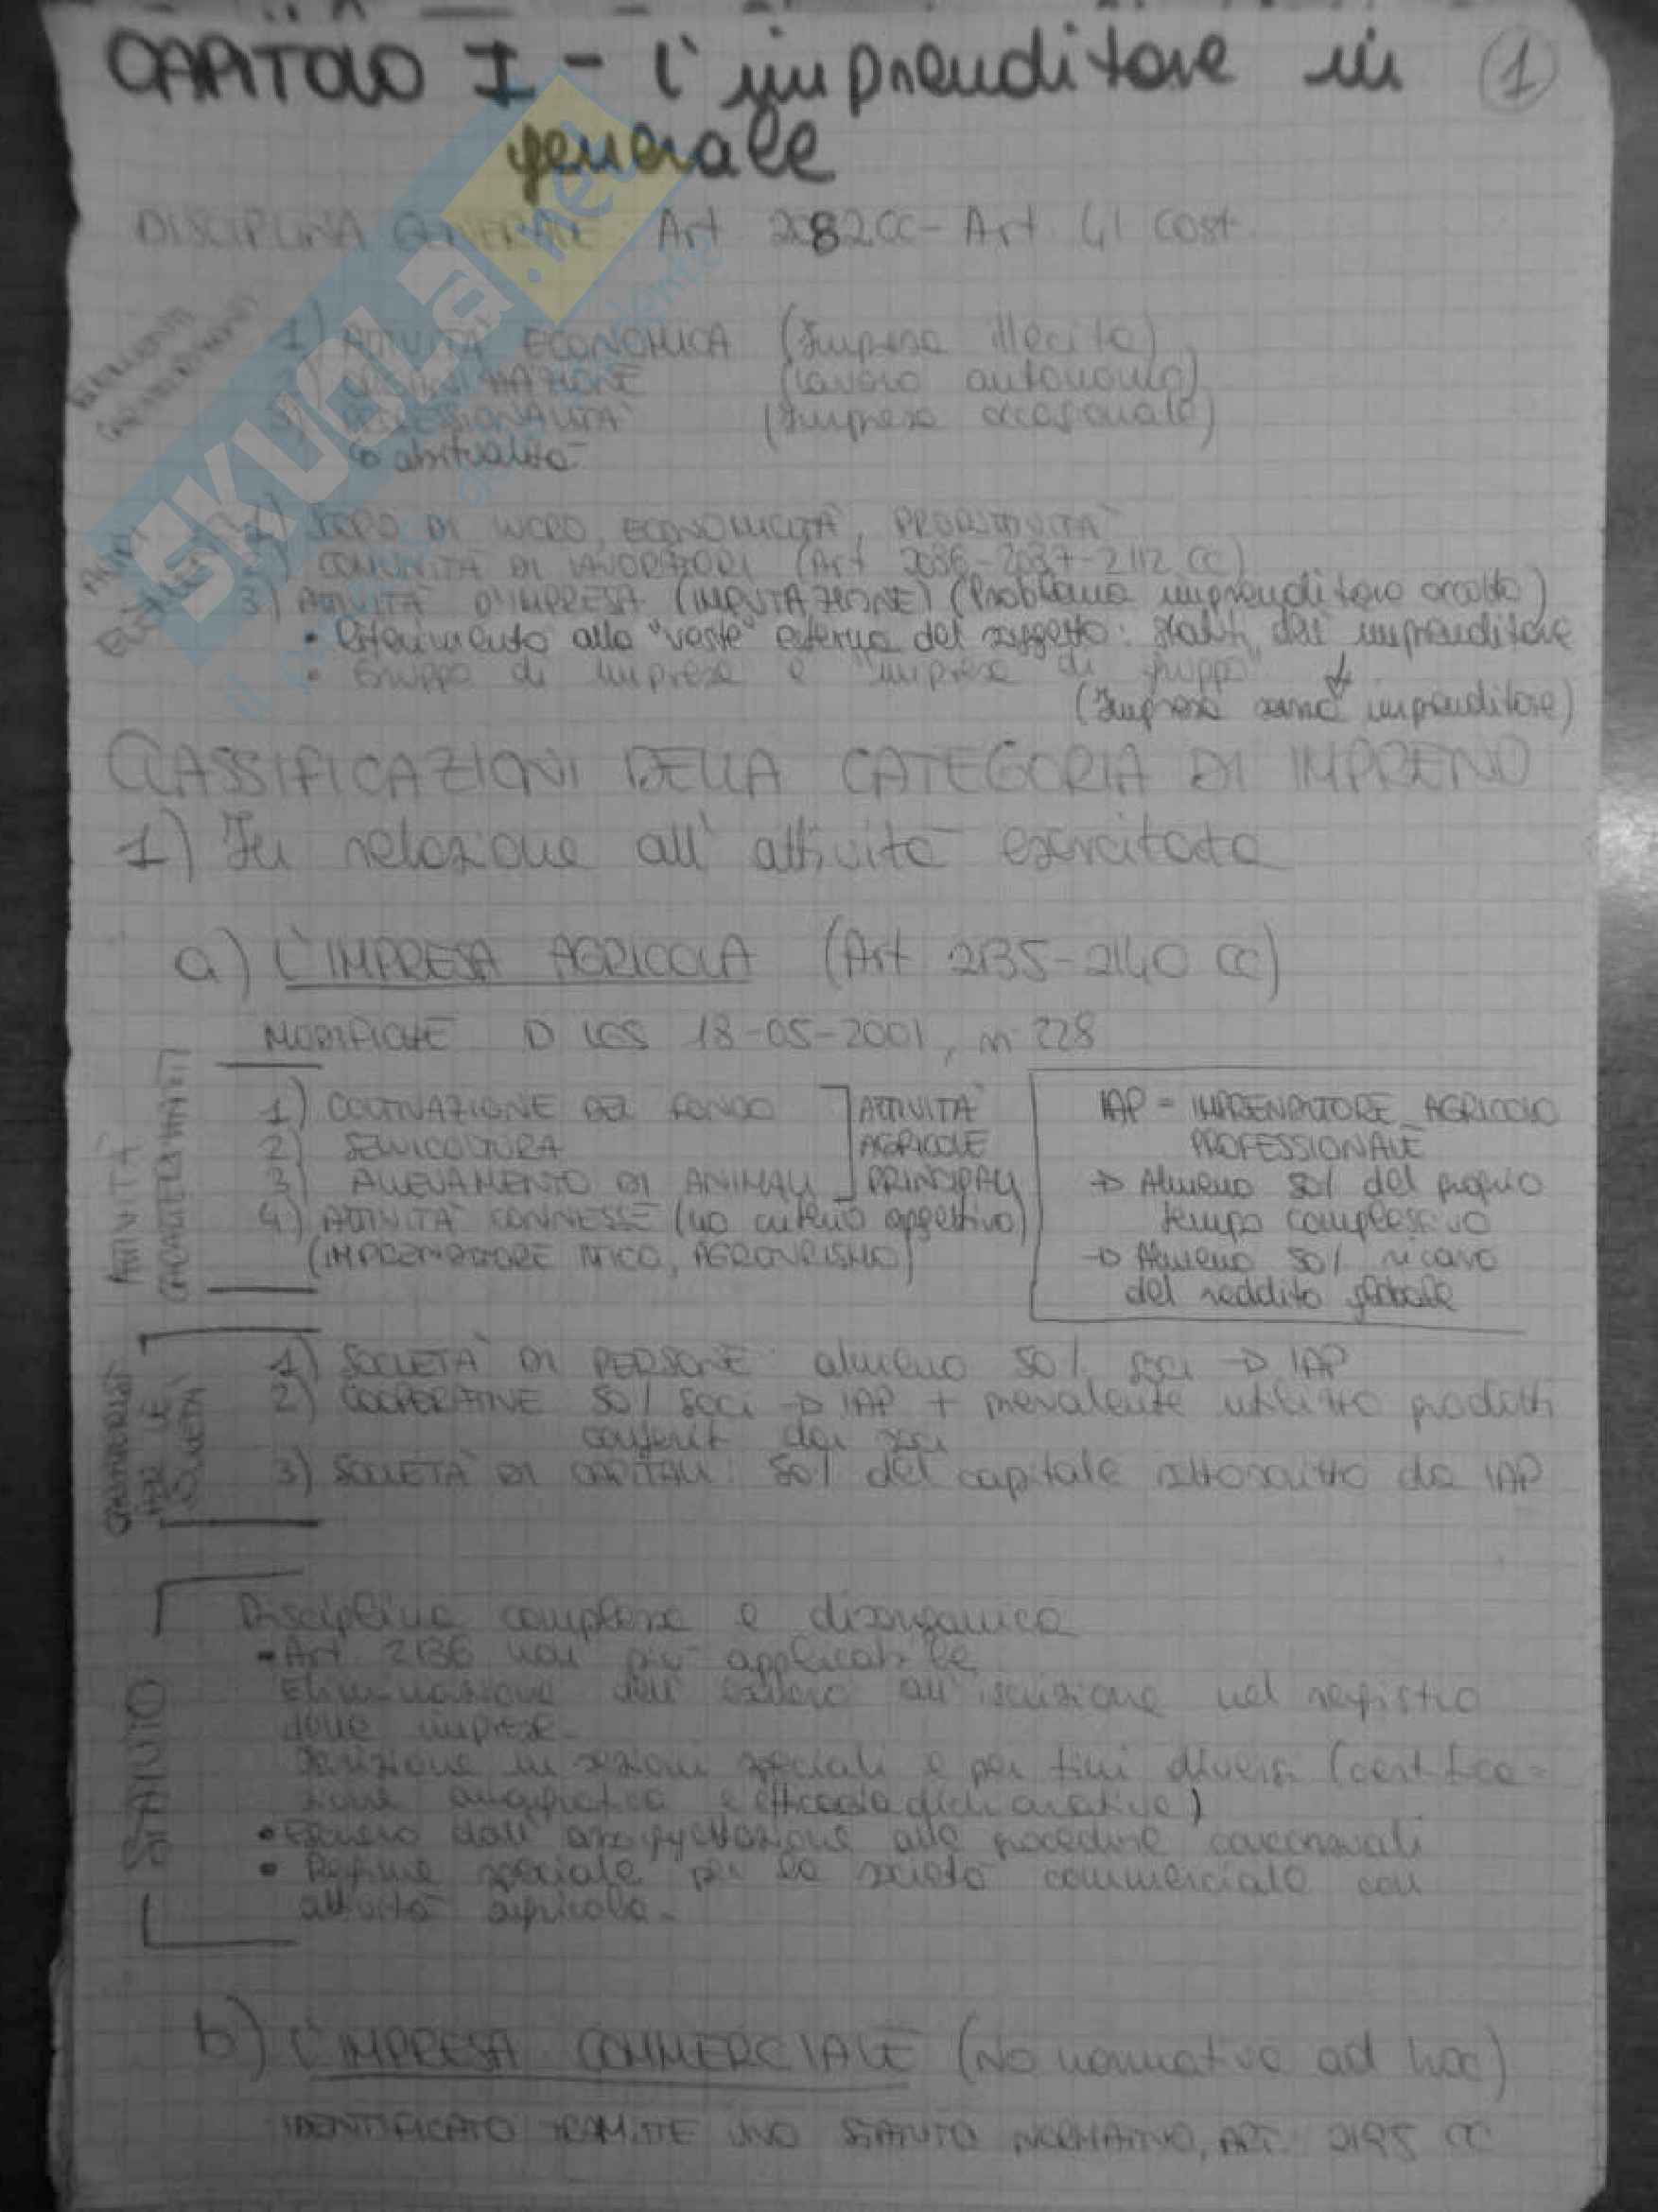 CAPITOLO I - l'imprenditore in
1
generale
DISCIPLINA GENERALE Art 2082 CC - Art. 41 cost.
ELEMENTI CARATTERIZZANTI
1) ATTIVITÀ ECONOMICA (Impresa illecita)
2) ORGANIZZAZIONE (lavoro autonomo)
3) PROFESSIONALITÀ (Impresa occasionale)
abitualità
ALTRI ELEMENTI
1) SCOPO DI LUCRO, ECONOMICITÀ, PRODUTTIVITÀ
2) COMUNITÀ DI LAVORATORI (Art 2086-2087-2112 CC)
3) ATTIVITÀ D'IMPRESA (IMPUTAZIONE) (Problema imprenditore occulto)
• Riferimento alla "veste" esterna del soggetto: dell'imprenditore
• Gruppo di imprese e "impresa di gruppo"
(Impresa senza imprenditore)
CLASSIFICAZIONI DELLA CATEGORIA DI IMPREND
1) In relazione all'attività esercitata
a) L'IMPRESA AGRICOLA (Art 2135-2140 CC)
MODIFICHE D LGS 18-05-2001, n 228
ATTIVITÀ CARATTERIZZANTI
1) COLTIVAZIONE DEL FONDO
2) SELVICOLTURA
3) ALLEVAMENTO DI ANIMALI
ATTIVITÀ
AGRICOLE
PRINCIPALI
4) ATTIVITÀ CONNESSE (no criterio oggettivo)
(IMPRENDITORE ITTICO, AGRITURISMO)
IAP = IMPRENDITORE AGRICOLO
PROFESSIONALE
→ Almeno 50% del proprio
tempo complessivo
→ Almeno 50% ricavo
del reddito globale
PER LE SOCIETÀ
1) SOCIETÀ DI PERSONE: almeno 50% soci → IAP
2) COOPERATIVE 50% soci → IAP + prevalente utilizzo prodotti
conferiti dai soci
3) SOCIETÀ DI CAPITALI: 50% del capitale sottoscritto da IAP
STATUTO
Disciplina complessa e disorganica
- Art. 2136 non più applicabile
Eliminazione dell'esonero all'iscrizione nel registro
delle imprese.
Iscrizione in sezioni speciali e per fini diversi (certifica-
zione anagrafica e efficacia dichiarativa)
• Esonero dall'assoggettazione alle procedure concorsuali
• Regime speciale per le società commerciale con
attività agricola.
b) L'IMPRESA COMMERCIALE (No normativa ad hoc)
IDENTIFICATO TRAMITE UNO STATUTO NORMATIVO, ART. 2195 CC
SKUOLA.net